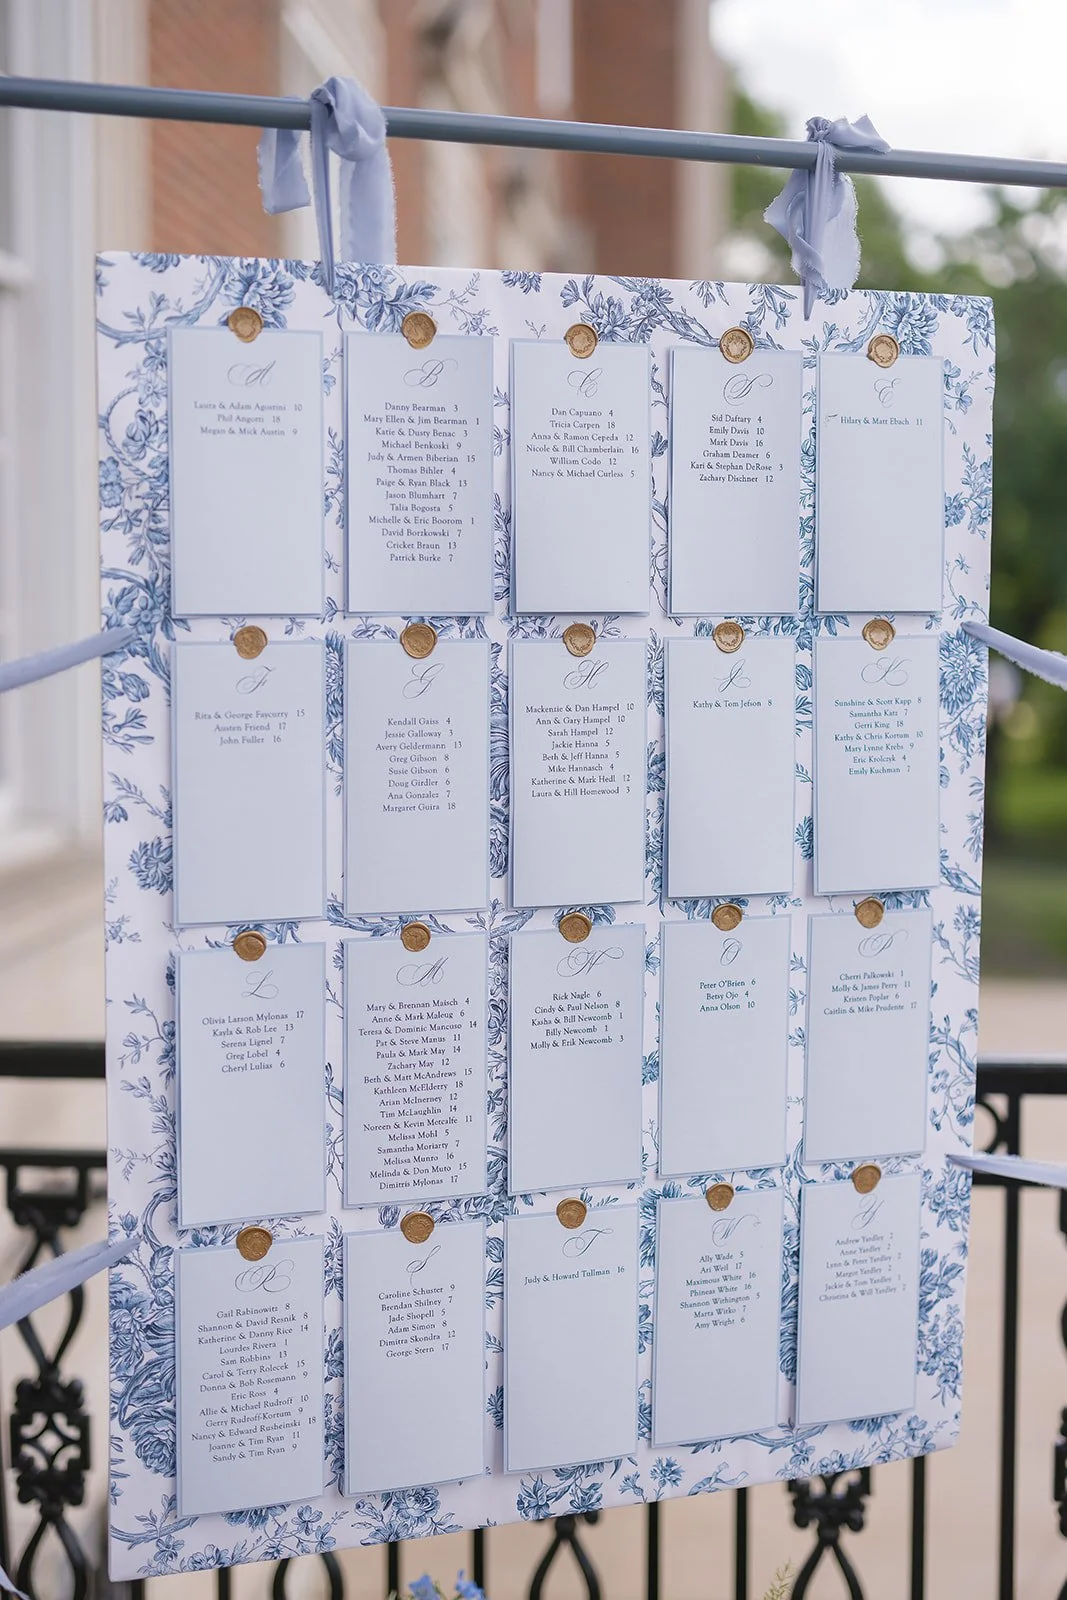 A
Laura & Adam Agostini 10
Phil Angotti 18
Megan & Mick Austin 9
B
Danny Bearman 3
Mary Ellen & Jim Bearman 1
Katie & Dusty Benac 3
Michael Benkoski 9
Judy & Armen Biberian 15
Thomas Bihler 4
Paige & Ryan Black 13
Jason Blumhart 7
Talia Bogosta 5
Michelle & Eric Boorom 1
David Borzkowski 7
Cricket Braun 13
Patrick Burke 7
C
Dan Capuano 4
Tricia Carpen 18
Anna & Ramon Cepeda 12
Nicole & Bill Chamberlain 16
William Codo 12
Nancy & Michael Curless 5
D
Sid Daftary 4
Emily Davis 10
Mark Davis 16
Graham Deamer 6
Kari & Stephan DeRose 3
Zachary Dischner 12
E
Hilary & Matt Ebach 11
F
Rita & George Faycurry 15
Austen Friend 17
John Fuller 16
G
Kendall Gaiss 4
Jessie Galloway 3
Avery Geldermann 13
Greg Gibson 8
Susie Gibson 6
Doug Girdler 6
Ana Gonzalez 7
Margaret Guira 18
H
Mackenzie & Dan Hampel 10
Ann & Gary Hampel 10
Sarah Hampel 12
Jackie Hanna 5
Beth & Jeff Hanna 5
Mike Hannasch 4
Katherine & Mark Hedl 12
Laura & Hill Homewood 3
J
Kathy & Tom Jefson 8
K
Sunshine & Scott Kapp 8
Samantha Katz 7
Gerri King 18
Kathy & Chris Kortum 10
Mary Lynne Krebs 9
Eric Krolczyk 4
Emily Kuchman 7
L
Olivia Larson Mylonas 17
Kayla & Rob Lee 13
Serena Lignel 7
Greg Lobel 4
Cheryl Lulias 6
M
Mary & Brennan Maisch 4
Anne & Mark Maleug 6
Teresa & Dominic Mancuso 14
Pat & Steve Manus 11
Paula & Mark May 14
Zachary May 12
Beth & Matt McAndrews 15
Kathleen McElderry 18
Arian McInerney 12
Tim McLaughlin 14
Noreen & Kevin Metcalfe 11
Melissa Mohl 5
Samantha Moriarty 7
Melissa Munro 16
Melinda & Don Muto 15
Dimitris Mylonas 17
N
Rick Nagle 6
Cindy & Paul Nelson 8
Kasha & Bill Newcomb 1
Billy Newcomb 1
Molly & Erik Newcomb 3
O
Peter O'Brien 6
Betsy Ojo 4
Anna Olson 10
P
Cherri Palkowski 1
Molly & James Perry 11
Kristen Poplar 6
Caitlin & Mike Prudente 17
R
Gail Rabinowitz 8
Shannon & David Resnik 8
Katherine & Danny Rice 14
Lourdes Rivera 1
Sam Robbins 13
Carol & Terry Rolecek 15
Donna & Bob Rosemann 9
Eric Ross 4
Allie & Michael Rudroff 10
Gerry Rudroff-Kortum 9
Nancy & Edward Rusheinski 18
Joanne & Tim Ryan 11
Sandy & Tim Ryan 9
S
Caroline Schuster 9
Brendan Shilney 7
Jade Shopell 5
Adam Simon 8
Dimitra Skondra 12
George Stern 17
T
Judy & Howard Tullman 16
W
Ally Wade 5
Ari Weil 17
Maximous White 16
Phineas White 16
Shannon Withington 5
Marta Witko 7
Amy Wright 6
Y
Andrew Yardley 2
Anne Yardley 2
Lynn & Peter Yardley 2
Margot Yardley 2
Jackie & Tom Yardley 1
Christina & Will Yardley 7